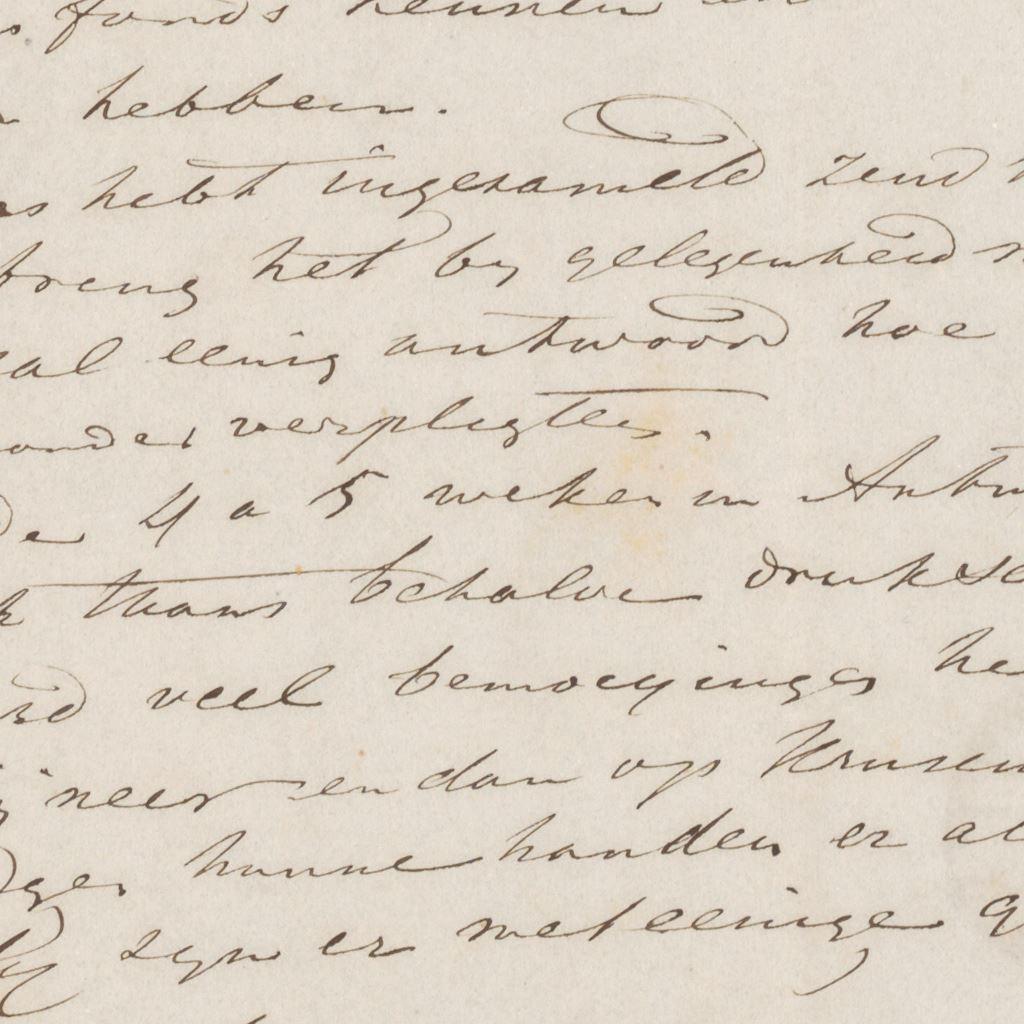 fonds kunnen en
hebben.
hebt ingezameld zend
breng het by gelegenheid
zal eenig antwoord hoe
onder verpligten.
de 4 a 5 weken in Antw
thans behalve druk
veel bemoeyinges he
neer en dan op
hunne handen er al
zyn er met eenige